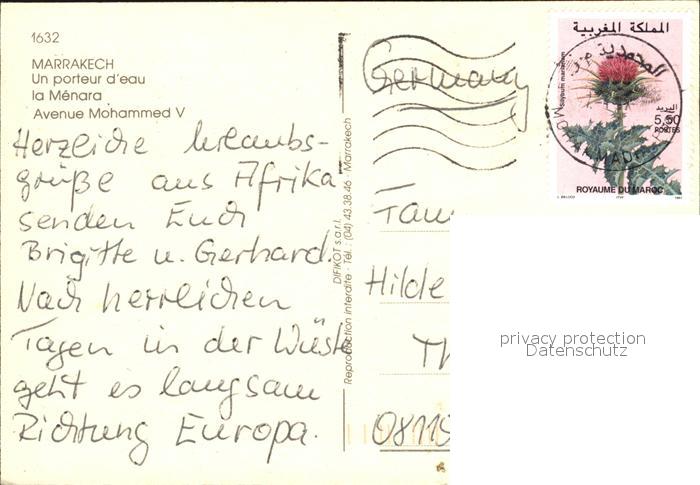 1632
MARRAKECH
Un porteur d'eau
la Ménara
Avenue Mohammed V
Herzliche Urlaubs-
grüße aus Afrika
senden Euch
Brigitte u. Gerhard.
Nach herrlichen
Tagen in der Wüste
geht es langsam
Richtung Europa.
DIFIKOT s.a.r.l.
Reproduction interdite - Tél. : (04) 43.38.46 - Marrakech
Germany
Hilde
privacy protection
Datenschutz
المملكة المغربية
silybum marianum
المحمدية
البريد
5,50
POSTES
ROYAUME DU MAROC